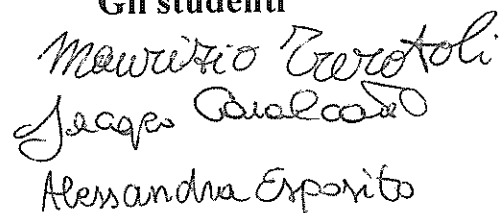 Gli studenti
Maurizio Trerotoli
Jacopo
Alessandra Esposito